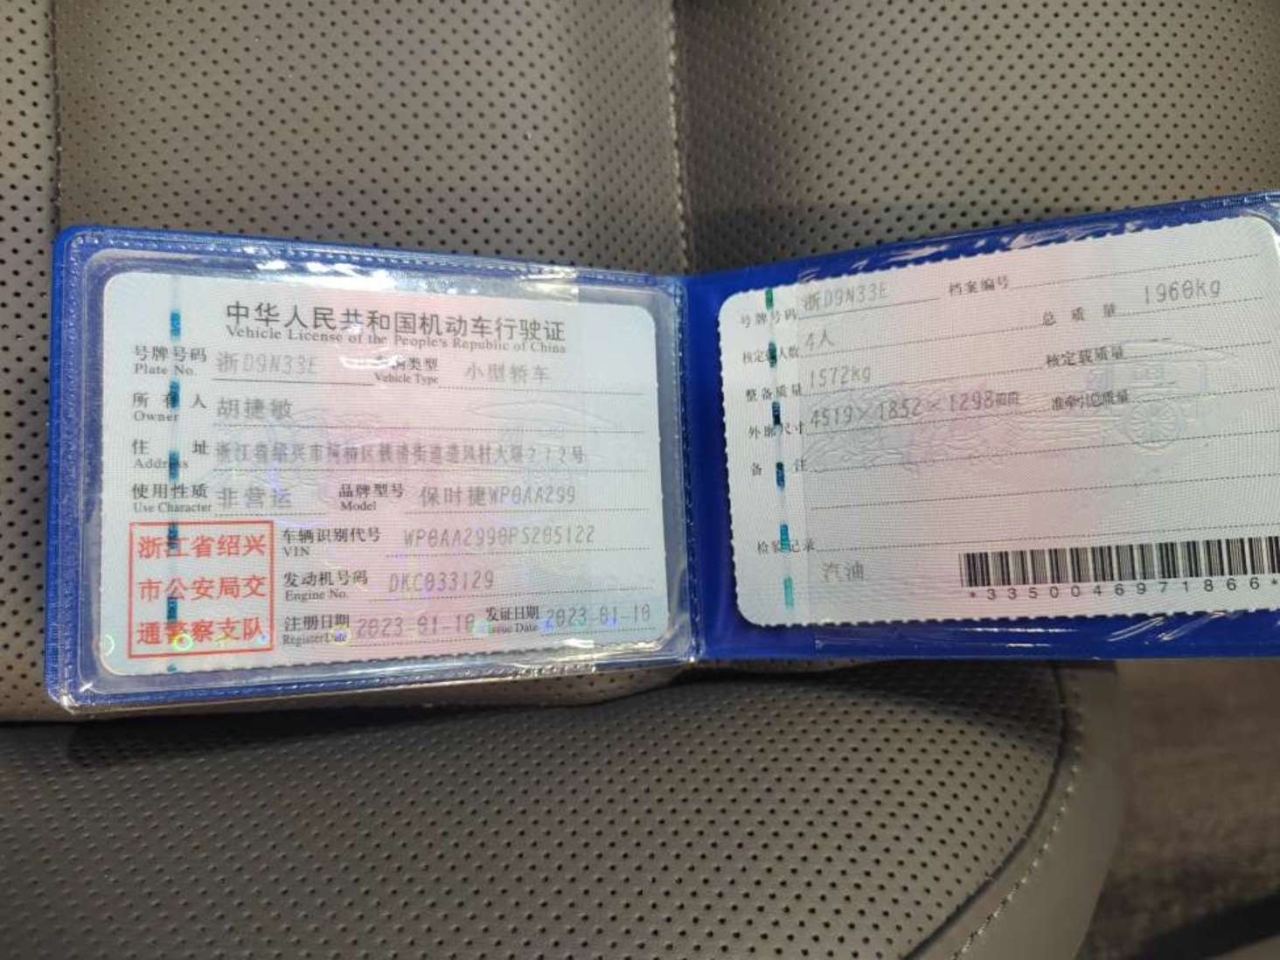 中华人民共和国机动车行驶证
Vehicle License of the People's Republic of China
号牌号码 浙D9N33E 类型 小型轿车
Plate No. Vehicle Type
所有人 胡捷敏
Owner
住址 浙江省绍兴市柯桥区 街道 村大 212号
Address
使用性质 非营运 品牌型号 保时捷WP0AA299
Use Character Model
浙江省绍兴
市公安局交
通警察支队
车辆识别代号 WP0AA2990PS205122
VIN
发动机号码 DKC033129
Engine No.
注册日期 2023-01-10 发证日期 2023-01-10
Register Date Issue Date
号牌号码 浙D9N33E 档案编号
核定载人数 4人 总质量 1960kg
整备质量 1572kg 核定载质量
外廓尺寸 4519×1852×1298mm 准牵引总质量
备注
检验记录
汽油
*3350046971866*